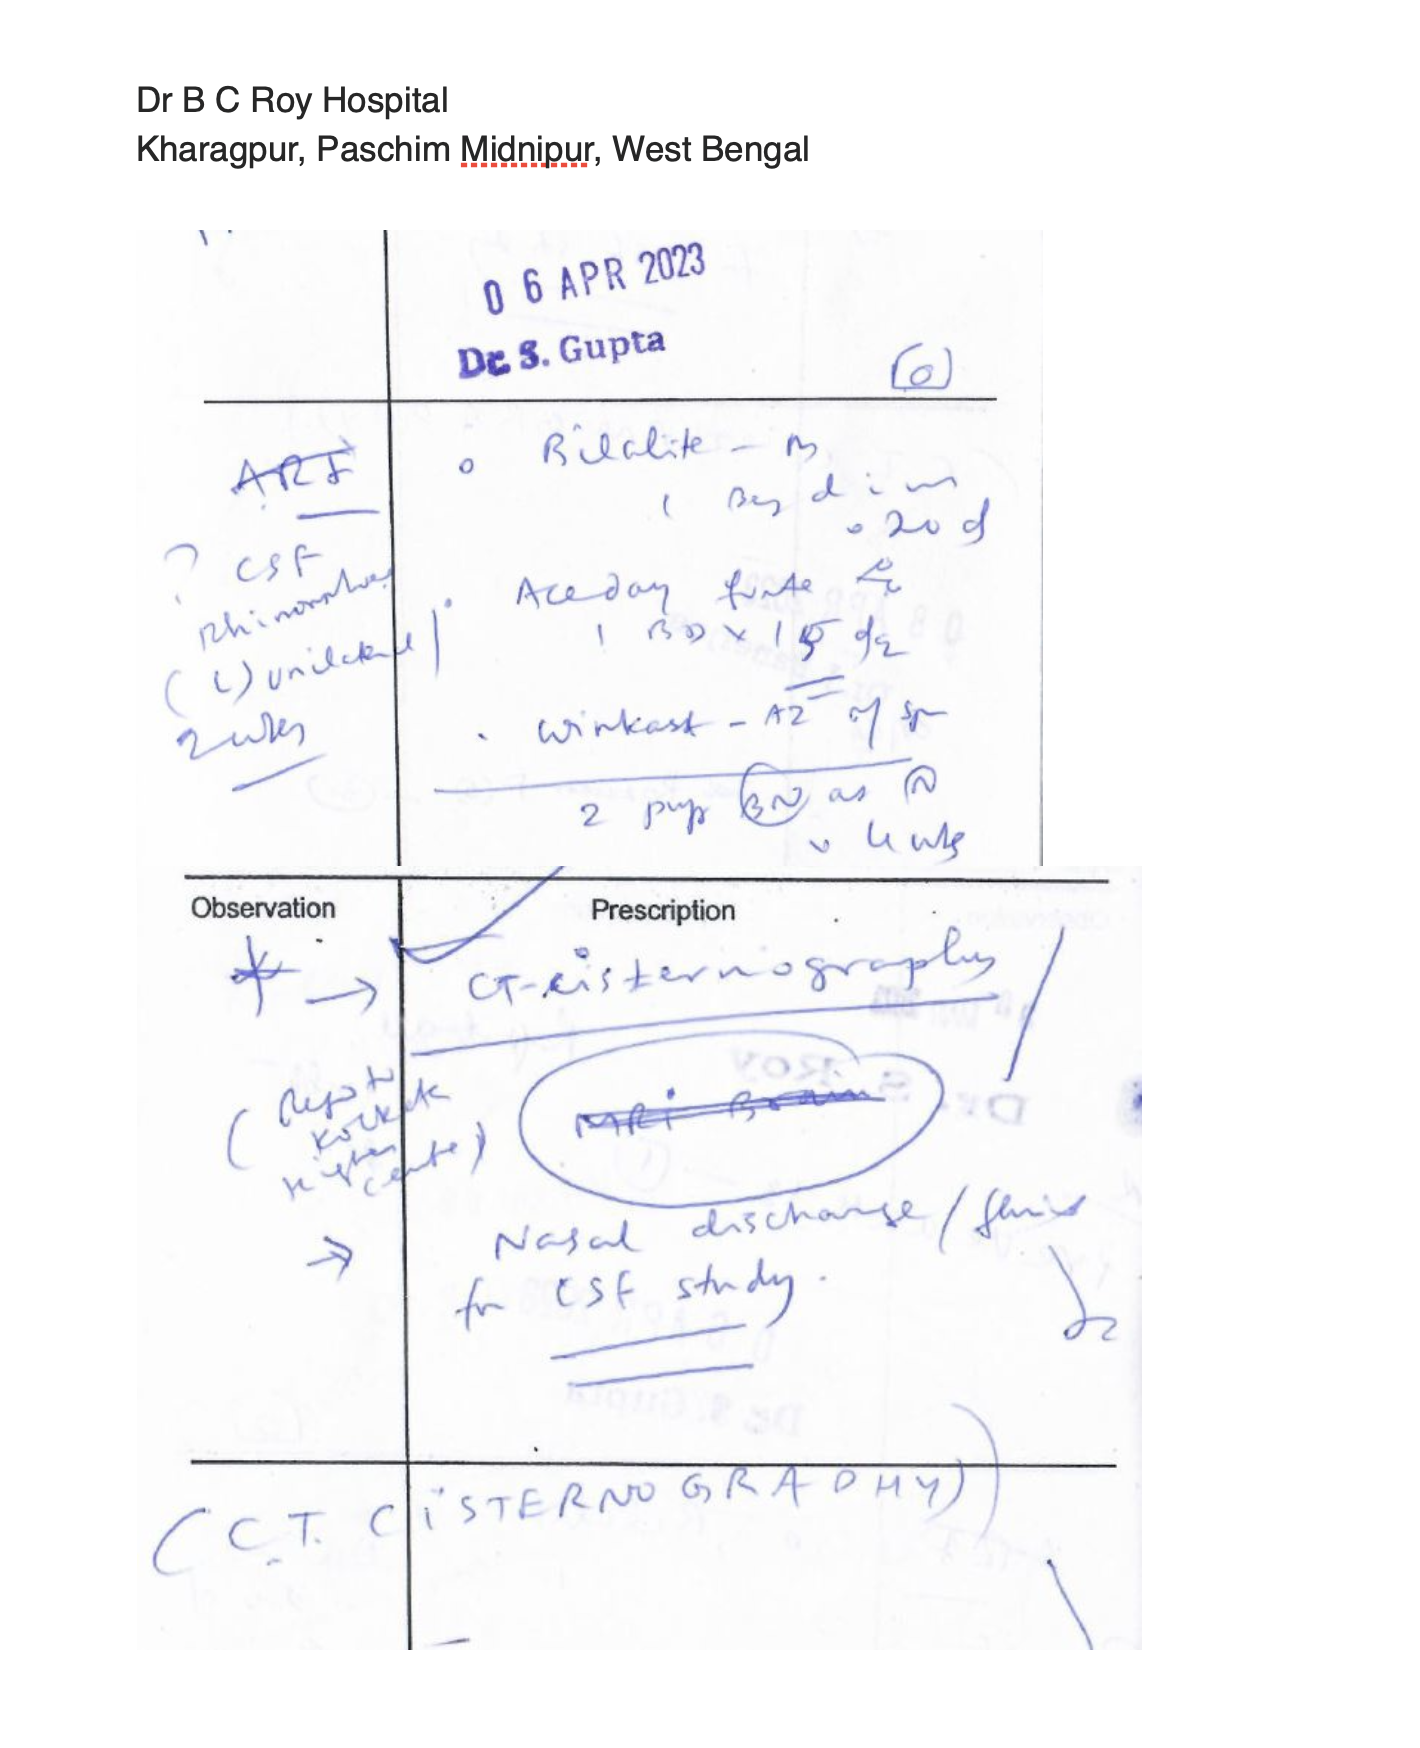 Dr B C Roy Hospital
Kharagpur, Paschim Midnipur, West Bengal
06 APR 2023
Dr. S. Gupta
? CSF
Rhinorrhoea
(L) unilateral
2 wks
Bilalite - M
1
20 d
Aceday forte
1 BD x 15 d
Winkast - AZ
2 puff BN as
4 wks
Observation Prescription
CT-cisternography
MRI Brain
(Refer to
Kolkata
Higher
centre)
Nasal discharge / fluid
for CSF study.
(C.T. CISTERNOGRAPHY)